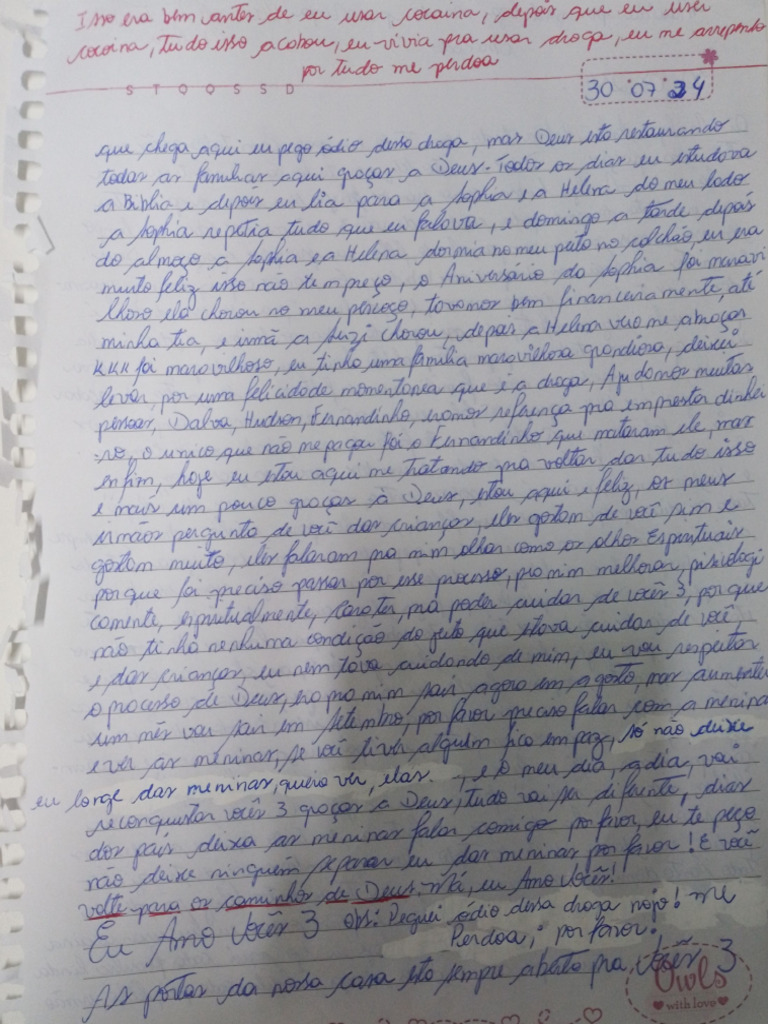 Isso era bem antes de eu usar cocaina, depois que eu usei
cocaina, tudo isso acabou, eu vivia pra usar droga, eu me arrependo
por tudo me perdoa
S T Q Q S S D
30 07 24
que chega aqui eu pego ódio dessa droga, mas Deus esta restaurando
todas as familias aqui graças a Deus. Todos os dias eu estudava
a Biblia e depois eu lia para a Sophia e a Helena do meu lado
a Sophia repetia tudo que eu falava, e domingo a tarde depois
do almoço a Sophia e a Helena dormia no meu peito no colchão, eu era
muito feliz isso não tem preço, o Aniversario da Sophia foi maravi
lhoso ela chorou no meu pescoço, tavamos bem financeiramente, até
minha tia, e irmã a Suzi chorou, depois a Helena veio me abraçar
KKK foi maravilhoso, eu tinha uma família maravilhosa grandiosa, deixei
levar, por uma felicidade momentanea que é a droga, Ajudamos muitas
pessoas, Dalva, Hudson, Fernandinho, eramos referença pra emprestar dinhei
ro, o unico que não me pagou foi o Fernandinho que mataram ele, mas
enfim, hoje eu estou aqui me tratando pra voltar dar tudo isso
e mais um pouco graças à Deus, estou aqui e feliz, os meus
irmãos pergunta de você das crianças, eles gostam de você sim e
gostam muito, eles falaram pra mim olhar como os olhos Espirituais
porque foi preciso passar por esse processo, pro mim melhorar, pisicologi
camente, espiritualmente, carater, pra poder cuidar de vocês 3, porque
não tinha nenhuma condição do jeito que estava cuidar de você,
e das crianças, eu nem tava cuidando de mim, eu vou respeitar
o processo de Deus, era pro mim sair agora em agosto, mas aumentou
um mês vou sair em setembro, por favor preciso falar com a menina
e ver as meninas, se você tiver alguém fico em paz, só não deixe
eu longe das meninas, quero ver, elas. , e o meu dia, a dia, vai
reconquistar vocês 3 graças a Deus, tudo vai ser diferente, dias
dos pais deixa as meninas falar comigo por favor, eu te peço
não deixe ninguém separar eu das meninas por favor! E você
volte para os caminhos de Deus tá, eu Amo vocês!
Eu Amo Vocês 3 obs: Peguei ódio dessa droga nojo! me
Perdoa, por favor!
As portas da nossa casa sta sempre aberta pra, vocês 3
Owls
with love